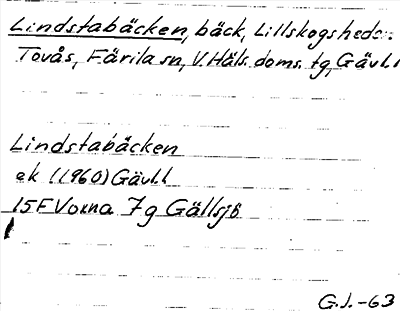 Lindstabäcken, bäck, Lillskogshed o.
Tovås, Färila sn, V. Häls. doms. tg, Gävl. l
Lindstabäcken
ek (1960) Gävl. l
15F Voxna 7g Gällsjö
G.J. -63